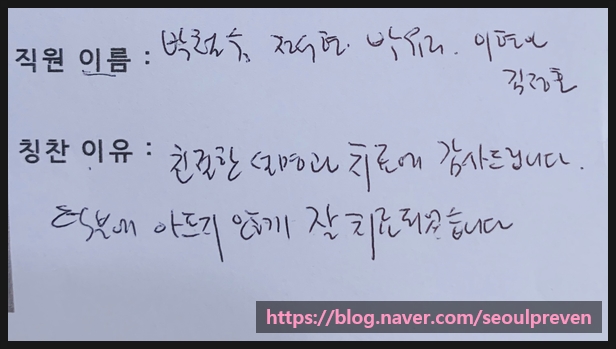 직원 이름 : 박철수, 전수현 박유리. 이현난
김정훈
칭찬 이유 : 친절한 설명과 치료에 감사드립니다.
덕분에 아프지 않게 잘 치료되었습니다
https://blog.naver.com/seoulpreven